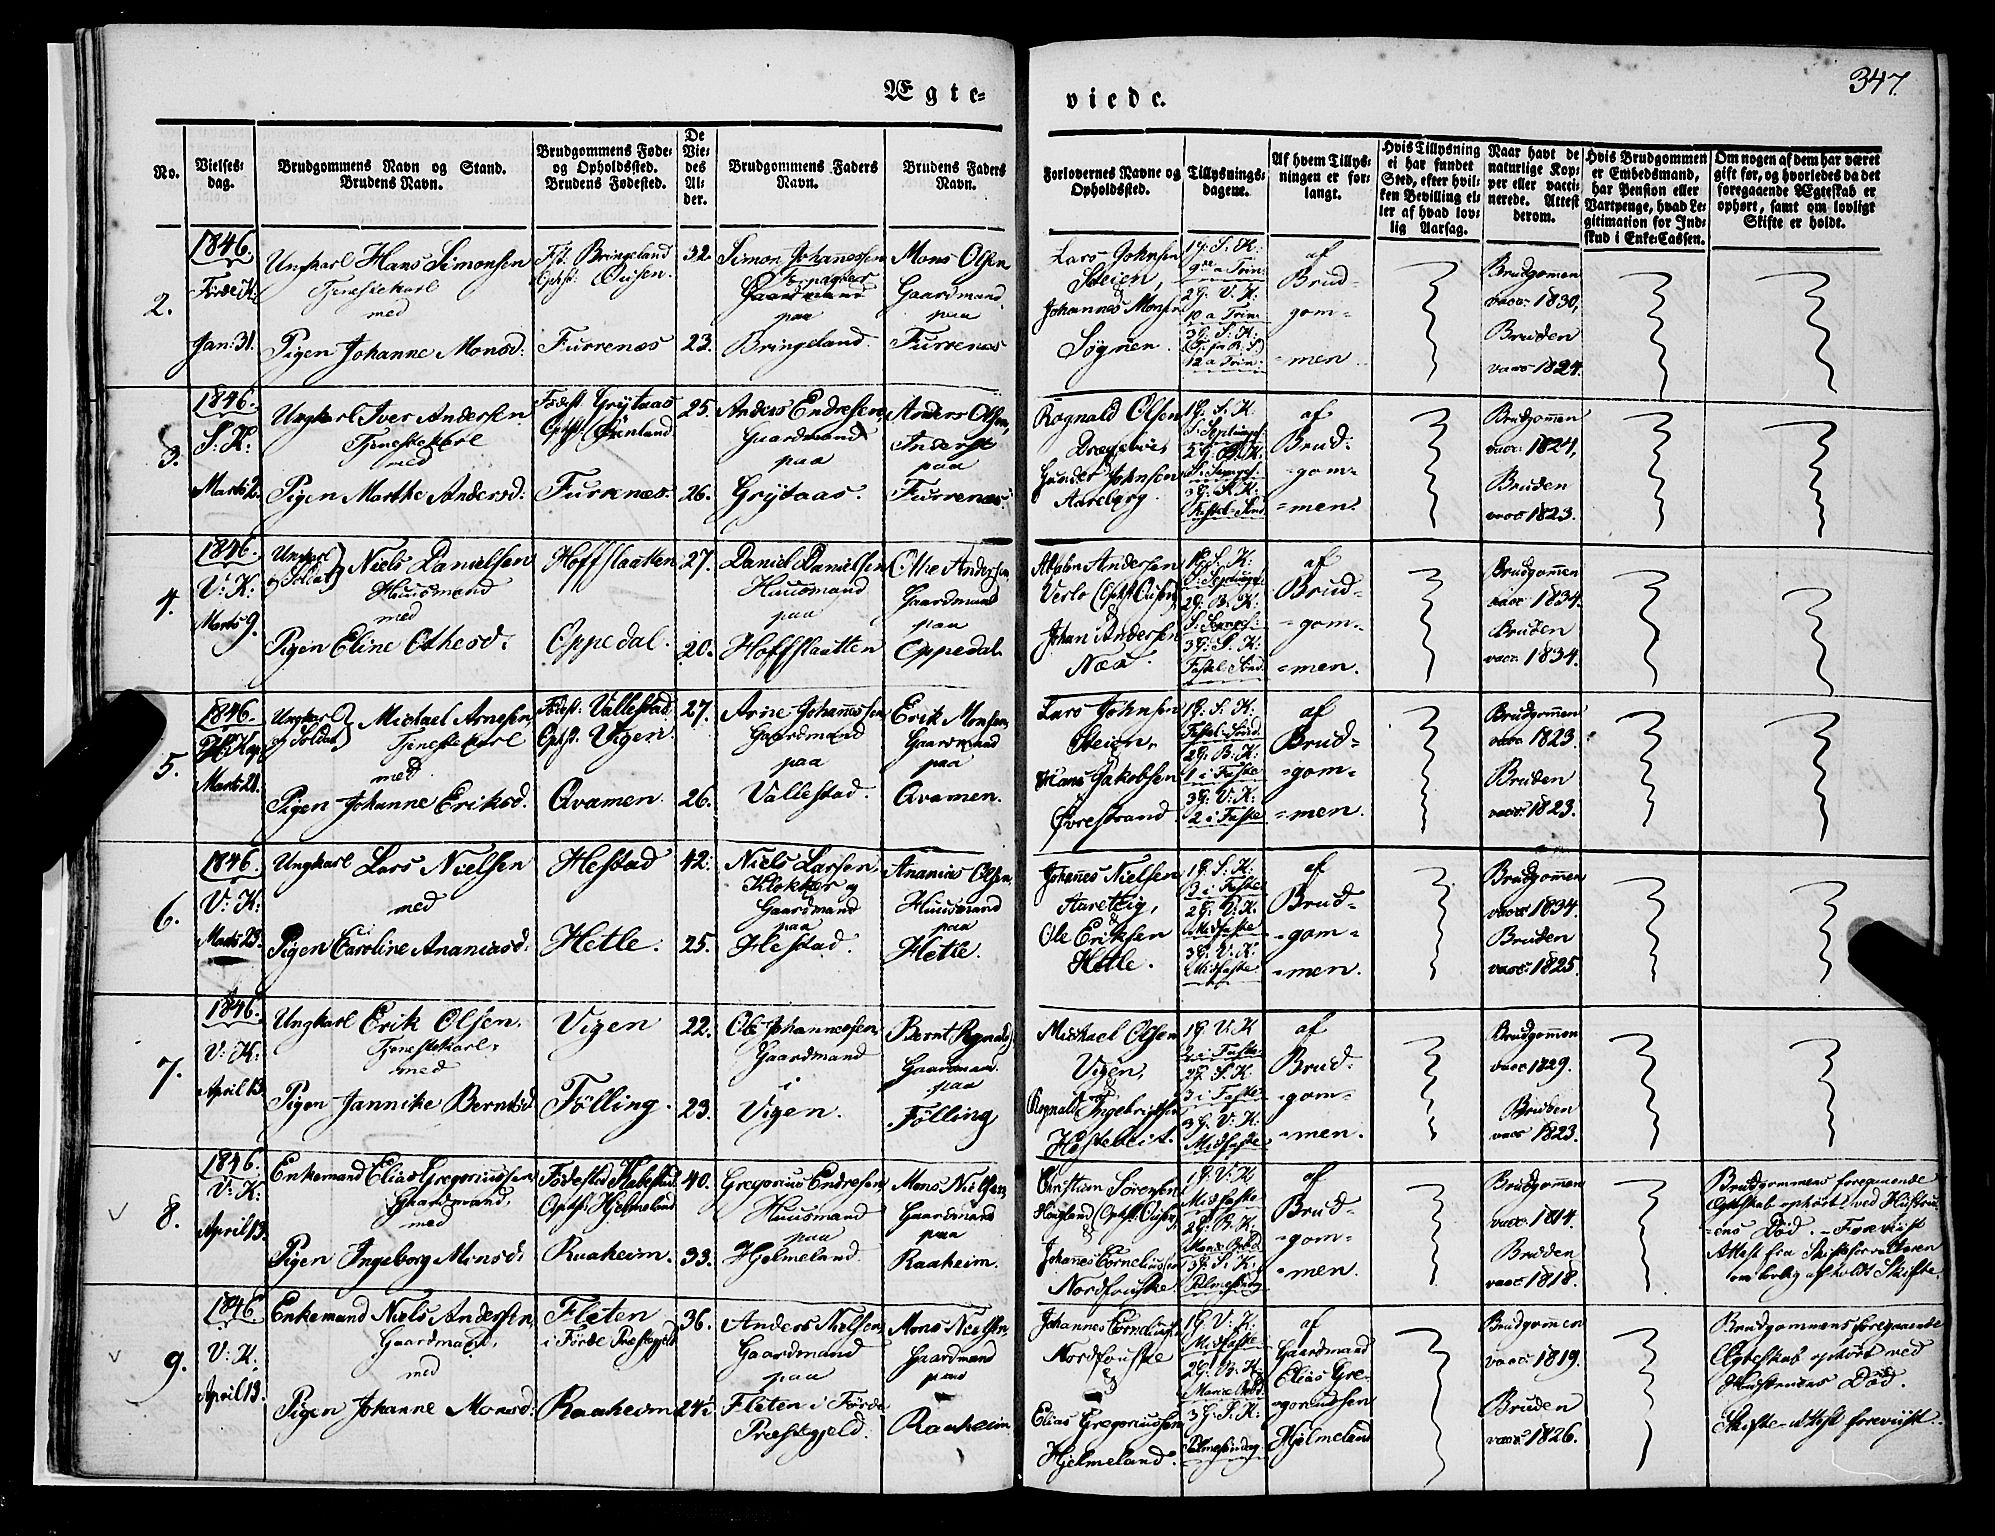 347.
Ægte-
viede.
No.
Vielses-
dag.
Brudgommens Navn og Stand.
Brudens Navn.
Brudgommens Føde-
og Opholdssted.
Brudens Fødested.
De
Vie-
des
Al-
der.
Brudgommens Faders
Navn.
Brudens Faders
Navn.
Forlovernes Navne og
Opholdssted.
Tillysnings-
dagene.
Af hvem Tillys-
ningen er for-
langt.
Hvis Tillysning
ei har fundet
Sted, efter hvil-
ken Bevilling el-
ler af hvad lov-
lig Aarsag.
Naar havt de
naturlige Kop-
per eller vacci-
nerede. Attest
derom.
Hvis Brudgommen
er Embedsmand,
har Pension eller
Vartpenge, hvad Le-
gitimation for Ind-
skud i Enke-Cassen.
Om nogen af dem har været
gift før, og hvorledes da det
foregaaende Ægteskab er
ophørt, samt om lovligt
Skifte er holdt.
2.
1846.
Førde K:
Jan: 31.
Ungkarl Hans Simonsen
Tjenestekarl
med
Pigen Johanne Monsd:
Fst. Bringeland
Ophst: Ousen.
Furrenæs
32.
23.
Simon Johanessen
Gaardmand
paa
Bringeland.
Mons Olsen
Gaardmand
paa
Furrenæs
Lars Johnsen
Steien,
&
Johannes Monsen
Søgnen.
1g: S. K:
9de a Trin:
2g: V. K:
10 a Trin:
3g: S. K:
12 a Trin:
af
Brud-
gom-
=men.
Brudgomen
vacc: 1830,
Bruden
vacc 1824.
3.
1846.
S. K.
Marts 2.
Ungkarl Iver Andersen
Tjenestekarl
med
Pigen Marthe Andersd:
Fødest. Grytaas
Ophst. Ørenland
Furrenæs.
25.
26.
Anders Endresen,
Gaardmand
paa
Grytaas.
Anders Olsen,
Inderst
paa
Furrenæs.
Rognald Olsen
&
Gunder Johnsen
Aareberg.
1g. S. K.
S: Septuages:
2g. V. K.
S. Sexages:
3g: S. K:
Fastel-Sønd.
af
Brud-
-gom-
=men.
Brudgommen
vacc: 1824,
Bruden
vacc 1823.
4.
1846.
V: K:
Marts 9.
Ungkarl
og Soldat
Niels Danielsen
Huusmand
med
Pigen Eline Othesd:
Hoffslaatten
Oppedal.
27.
20.
Daniel Danielsen
Huusmand
paa
Hoffslaatten
Othe Andersen
Gaardmand
paa
Oppedal.
Andersen
(Ophst. Ousen)
&
Johan Andersen
Næs.
1g: S. K:
S: Septuages:
2g. V. K:
S. Sexages:
3g: S. K:
Fastel-Sønd.
af
Brud-
-gom-
=men.
Brudgommen
vacc: 1834.
Bruden
vacc: 1834.
5.
1846.
Marts 21.
Ungkarl
og Soldat
Michael Arnesen,
Tjenestekarl
med
Pigen Johanne Eriksd.
Fødest: Vallestad.
Ophst. Vigen.
Qvamen.
27.
26.
Arne Johannessen
Gaardmand
paa
Vallestad.
Erik Monsen,
Gaardmand
paa
Qvamen.
Lars Johnsen
Steien,
Hans Jakobsen
Øvrestrand
1g: S. K:
Fastel-Sønd.
2g: V. K:
1 i Faste
3g: V: K:
2 i Faste
af
Brud-
-gom-
=men.
Brudgommen
vacc 1823.
Bruden
vacc 1823.
6.
1846.
V: K:
Marts 23.
Ungkarl Lars Nielsen
med
Pigen Caroline Ananiasd:
Hestad
Hetle.
42.
25.
Niels Larsen,
Klokker og
Gaardmand
paa
Hestad.
Ananias Olsen,
Huusmand
paa
Hetle.
Johanes Nielsen
&
Ole Eriksen
Hetle.
1g: S. K:
3 i Faste
2g: V: K.
Midfaste
3g: V. K:
Midfaste
af
Brud-
-gom-
=men.
Brudgommen
vacc: 1834.
Bruden
vacc: 1825.
7.
1846.
V: K:
April 13.
Ungkarl Erik Olsen.
Tjenestekarl,
med
Pigen Jannike Berntsd
Vigen
Følling.
22.
23.
Ole Johannessen,
Gaardmand
i
Vigen.
Gaardmand
paa
Følling
Michael Olsen
Vigen,
&
Rognald Ingebrigtsen
1g. V. K
2 i Faste
2g. S. K:
3 i Faste
3g. V: K:
Midfaste
af
Brud-
-gom-
=men.
Brudgommen
vacc 1829.
Bruden
vacc 1823.
8.
1846.
V: K:
April 13.
Enkemand Elias Gregoriussen
Gaardmand,
med
Pigen Ingeborg Monsd:
Fødested Hebestad
Ophst: Hjelmeland
Raaheim.
40.
33.
Gregorius Endresen,
Huusmand
paa
Hjelmeland.
Mons Nielsen,
Gaardmand
paa
Raaheim.
Christian Sørensen
Hougland (Ophst. Ousen)
&
Johannes Corneliussen
Nordfouske
1g: V: K
Midfaste
2g: V. K:
Mariæ Beb.
3g: S. K:
Palmesøndag
af
Brud-
-gom-
=men.
Brudgommen
vacc: 1814.
Bruden
vacc 1818.
Brudgommens foregaaende
Ægteskab ophørt ved Hustru-
=ens Død. - Foreviist
Attest fra Skifteforvalteren
om lovlig afholdt Skifte.
9.
1846
V: K:
April 13.
Enkemand Niels Andersen,
Gaardmand,
med
Pigen Johanne Monsd:
Fleten
i Førde Præstegjeld
Raaheim
36.
24½
Anders Nielsen,
Gaardmand
paa
Fleten i Førde
Præstegjeld.
Mons Nielsen,
Gaardmand
paa
Raaheim.
Johannes Corneliussen
Nordfouske
&
Elias Gregoriussen
Hjelmeland.
1g V: K:
Midfaste
2g. V. K:
Mariæ Beb.
3g: S. K:
Palmesøndag.
af
Gaardmand
Elias Gre-
-goriussen
Hjelmeland
Brudgommen
vacc: 1819.
Bruden
vacc: 1826.
Brudgommens foregaaende
Ægteskab ophørt ved
Hustruens Død.
Skifte-Attest foreviist.